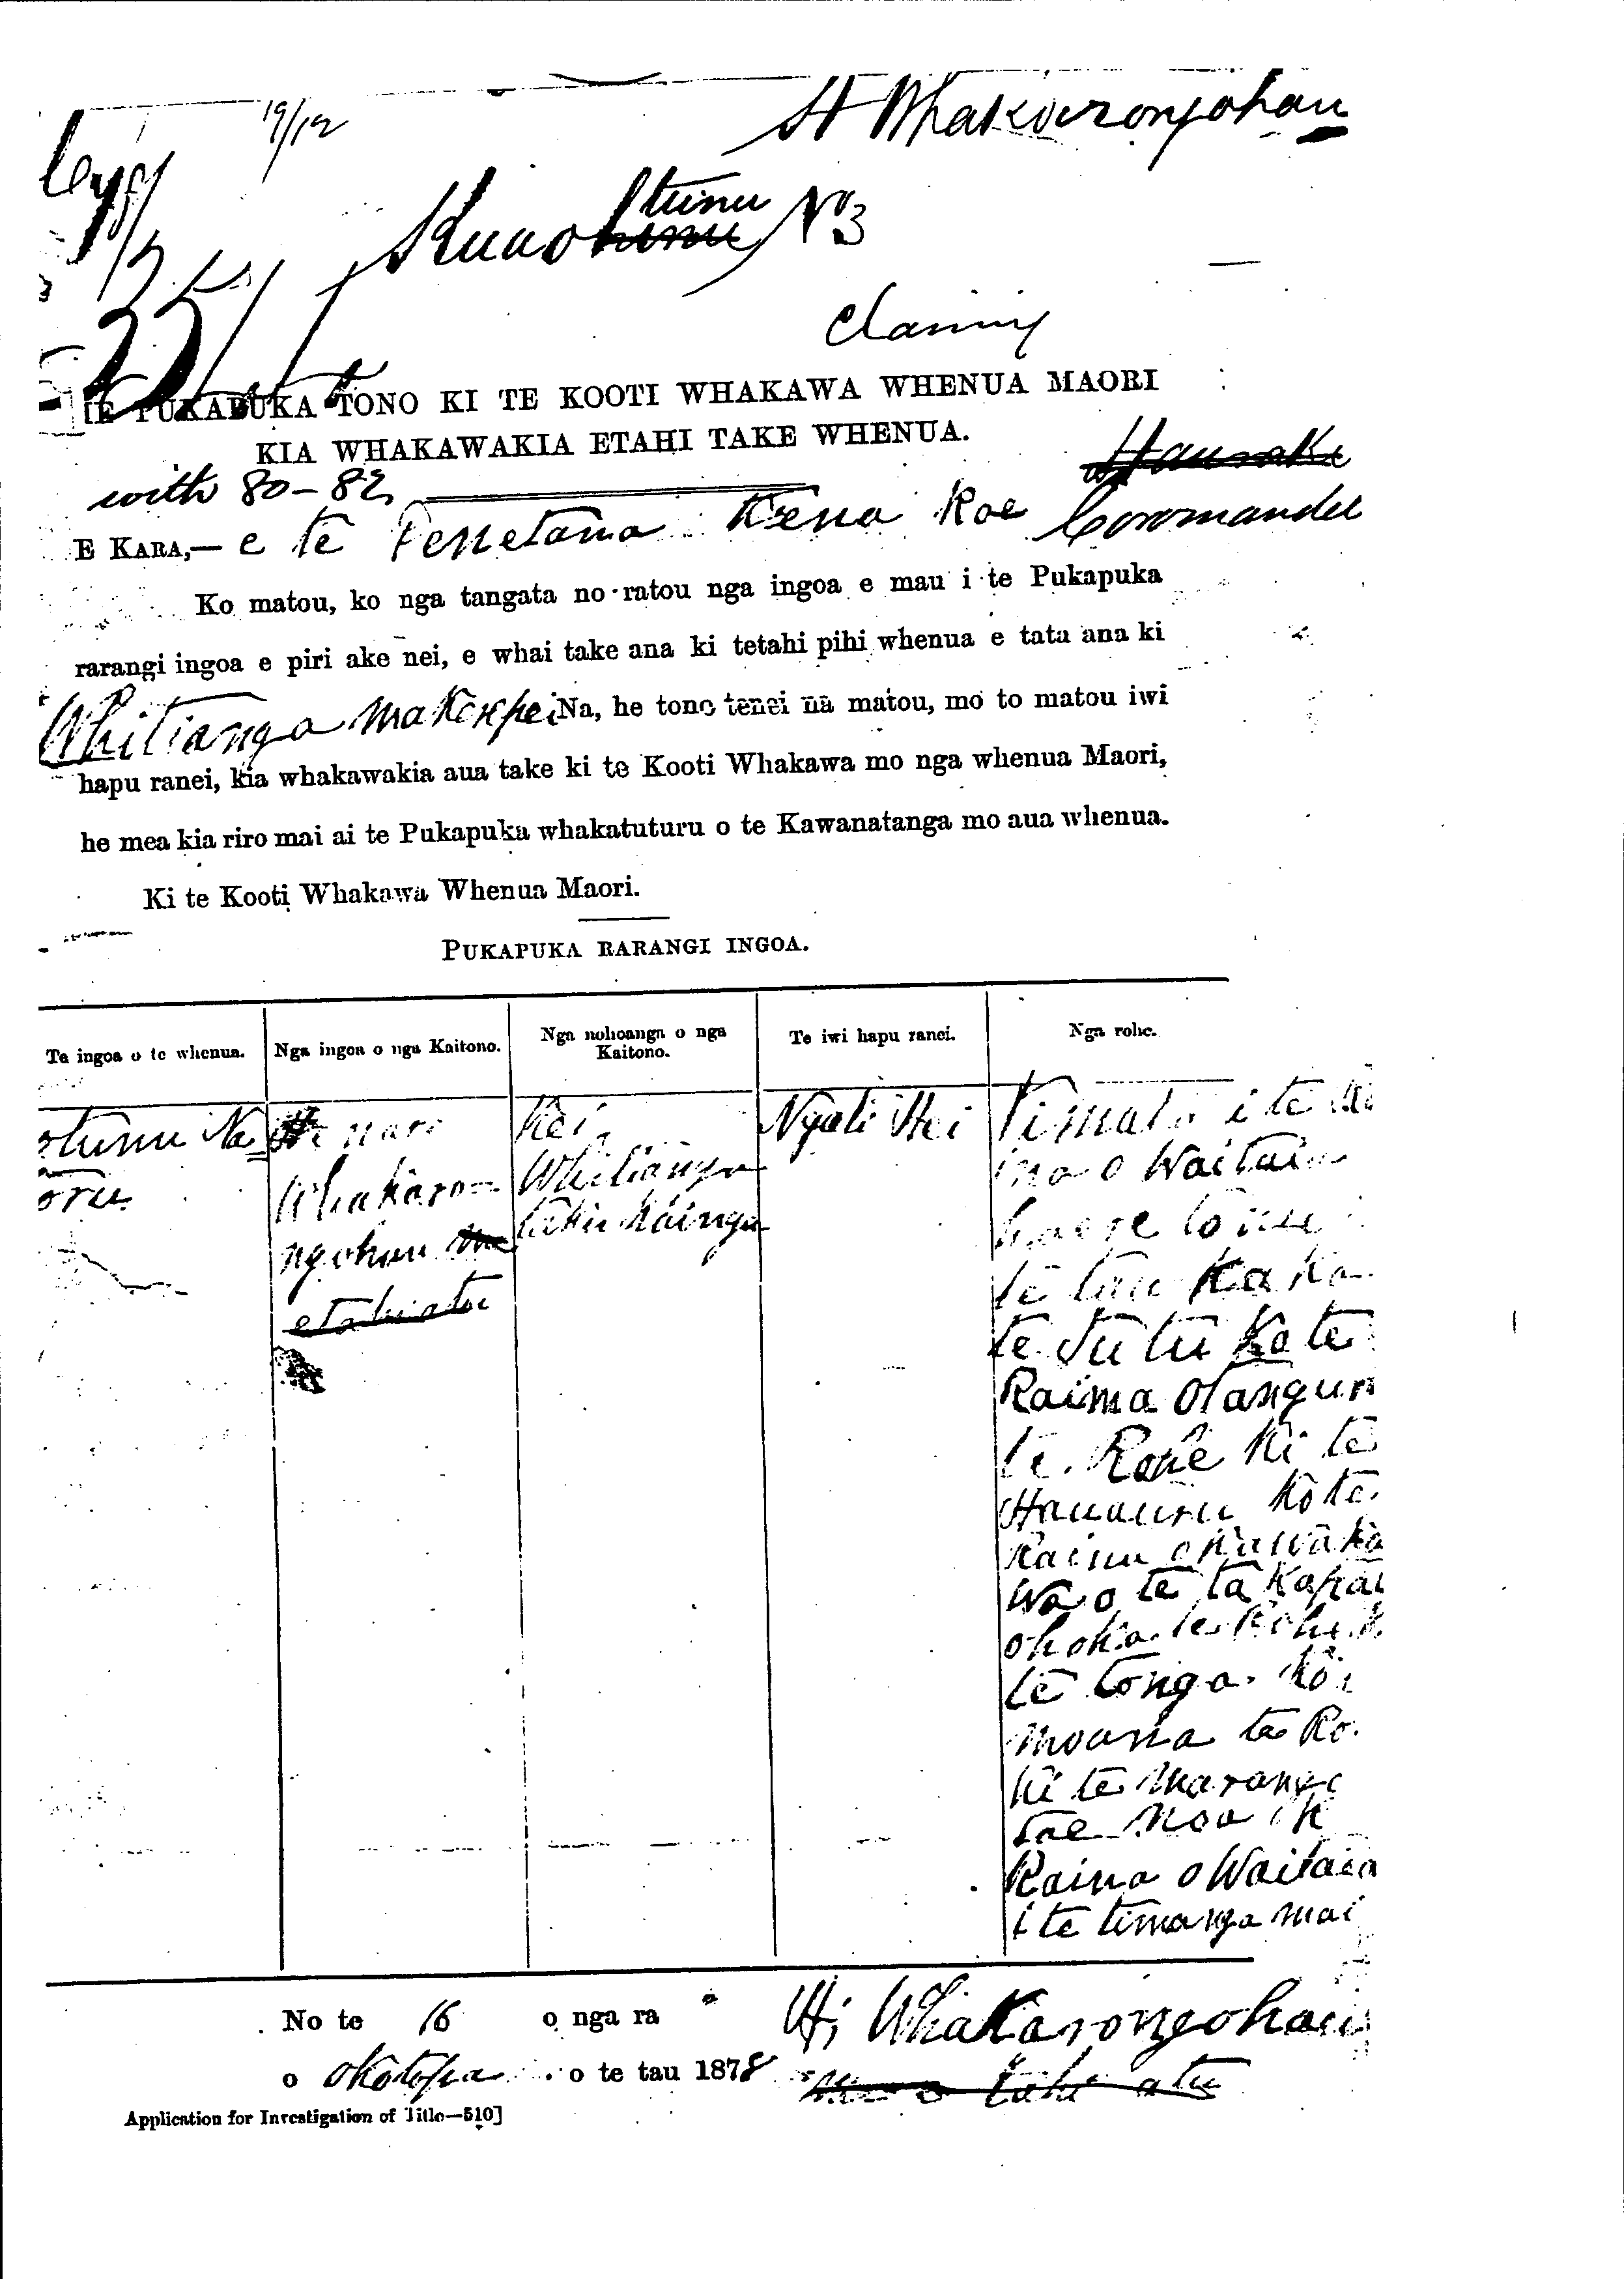 19/12
H Whakarongohau
Kuaohunu tunu No 3
claim
HE PUKAPUKA TONO KI TE KOOTI WHAKAWA WHENUA MAORI
KIA WHAKAWAKIA ETAHI TAKE WHENUA.
Hauraki
with 80-82
E KARA,— e te Penetana Tena Koe Coromandel
Ko matou, ko nga tangata no ratou nga ingoa e mau i te Pukapuka
rarangi ingoa e piri ake nei, e whai take ana ki tetahi pihi whenua e tata ana ki
Whitianga Na, he tono tenei na matou, mo to matou iwi
hapu ranei, kia whakawakia aua take ki te Kooti Whakawa mo nga whenua Maori,
he mea kia riro mai ai te Pukapuka whakatuturu o te Kawanatanga mo aua whenua.
Ki te Kooti Whakawa Whenua Maori.
PUKAPUKA RARANGI INGOA.
Te ingoa o te whenua.
Nga ingoa o nga Kaitono.
Nga nohoanga o nga
Kaitono.
Te iwi hapu ranei.
Nga rohe.
otunu Na
oru
Whakaro
ngohau me
etahi atu
Kei
Whitianga
taku kainga
Ngati Hei
Timata i te
ina o Waitaia
haere tonu
te tau Ka Ko
te Tutu Ko te
Raina Otangur
te Rohe Ki te
Hauauru Ko te
Raina
wa o te ta Kapai
ohoka te Rohe K
te tonga Ko
moana te Ro
ki te marangi
tae noa
Raina o Waitaia
i te timanga mai
No te 16 o nga ra
Hi Whakarongohau
o Okotopa o te tau 1878
me e tahi atu
Application for Investigation of Title—510]